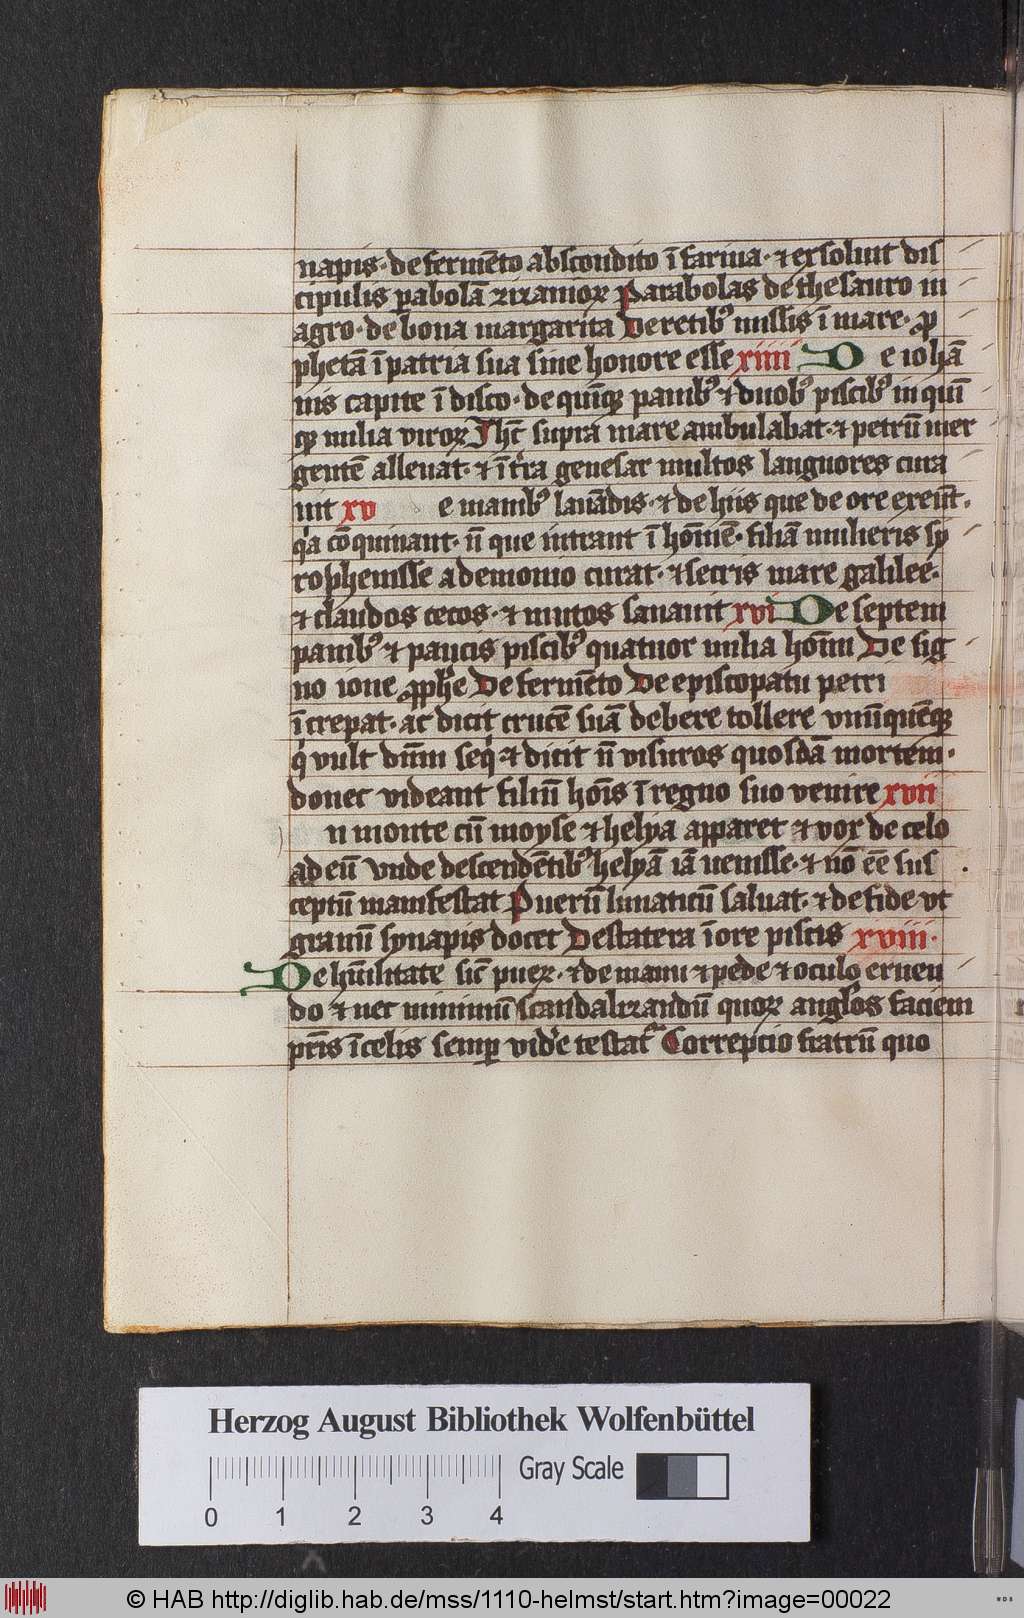 napis · de fermēto abscondito ī farina · ⁊ exsoluit dis
cipulis ꝑabolā zizanioꝝ Parabolas de thesauro in
agro · de bona margarita De retibꝰ missis ī mare · ꝓ
phetā ī patria sua sine honore esse xiiii De iohā
nis capite ī disco · de quīqꝫ panibꝰ ⁊ duobꝰ piscibꝰ in quī
qꝫ milia viroꝝ Ihc̄ supra mare ambulabat · ⁊ petrū mer
gentē alleuat · ⁊ ī t̄ra genesar multos languores cura
uit xv e manibꝰ lauādis · ⁊ de hiis que de ore exeūt ·
qͣ cōquinant · n̄ que intrant ī hoīmē · filiā mulieris sy
rophenisse a demonio curat · ⁊ secꝰ mare galilee ·
⁊ claudos cecos · ⁊ mutos sanauit xvi De septem
panibꝰ ⁊ paucis piscibꝰ quatuor milia hoīm De sig
no ione ꝓphe De fermēto De episcopatu petri
īcrepat · ac dicit crucē suā debere tollere vnūquēqꝫ
qͥ vult dn̄m seqͥ ⁊ dicit n̄ visuros quosdā mortem ·
donec videant filiū hoīs ī regno suo venire xvii
n monte cū moyse ⁊ helya apparet ⁊ vox de celo
ad eū vnde descendētibꝰ helyā iā uenisse · ⁊ nō eē sus
ceptū manifestat Puerū lunaticū saluat · ⁊ de fide vt
granū synapis docet De statera ī ore piscis xviii ·
De hūilitate sic̄ pueꝝ · ⁊ de manu ⁊ pede ⁊ oculo eruen
do ⁊ nec minimū scandalizandū quoꝝ angl̓os faciem
pr̄is ī celis semꝑ vid̓e testat᷑ Correpcio fratrū quo
Herzog August Bibliothek Wolfenbüttel
Gray Scale
0 1 2 3 4
© HAB http://diglib.hab.de/mss/1110-helmst/start.htm?image=00022